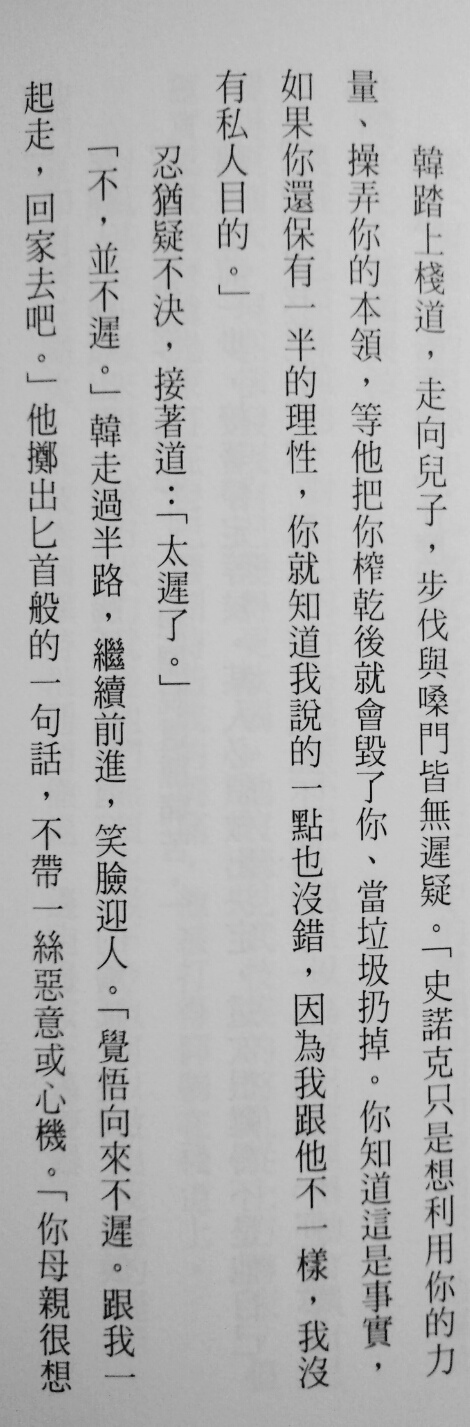 韓踏上棧道，走向兒子，步伐與嗓門皆無遲疑。「史諾克只是想利用你的力
量、操弄你的本領，等他把你榨乾後就會毀了你、當垃圾扔掉。你知道這是事實，
如果你還保有一半的理性，你就知道我說的一點也沒錯，因為我跟他不一樣，我沒
有私人目的。」
忍猶疑不決，接著道：「太遲了。」
「不，並不遲。」韓走過半路，繼續前進，笑臉迎人。「覺悟向來不遲。跟我一
起走，回家去吧。」他擲出匕首般的一句話，不帶一絲惡意或心機。「你母親很想